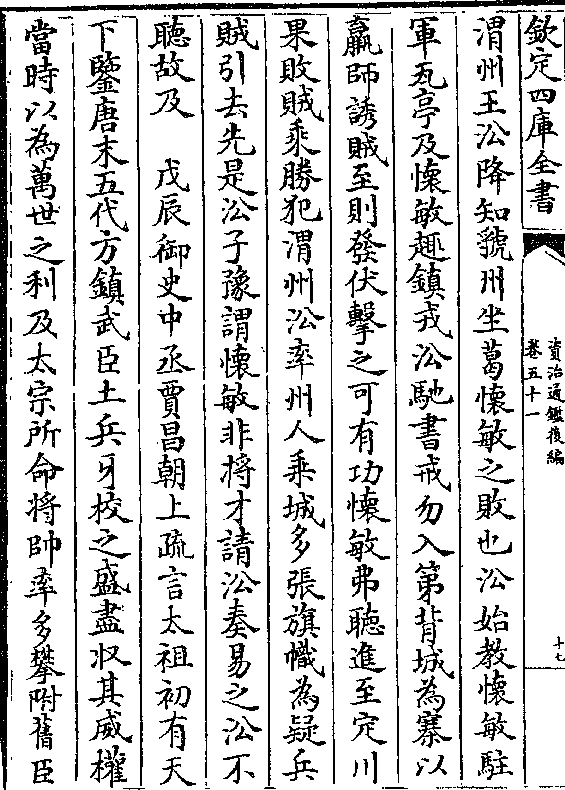 欽定四庫全書
資治通鑑後編
卷五十一
十七
渭州王㳂降知虢州坐葛懷敏之敗也㳂始教懷敏駐
軍瓦亭及懷敏趣鎮戎㳂馳書戒勿入第背城為寨以
羸師誘賊至則發伏擊之可有功懷敏弗聽進至定川
果敗賊乘勝犯渭州㳂率州人乘城多張旗幟為疑兵
賊引去先是㳂子豫謂懷敏非將才請㳂奏易之㳂不
聽故及　戊辰御史中丞賈昌朝上疏言太祖初有天
下鑒唐末五代方鎮武臣土兵牙校之盛盡收其威權
當時以為萬世之利及太宗所命將帥率多攀附舊臣